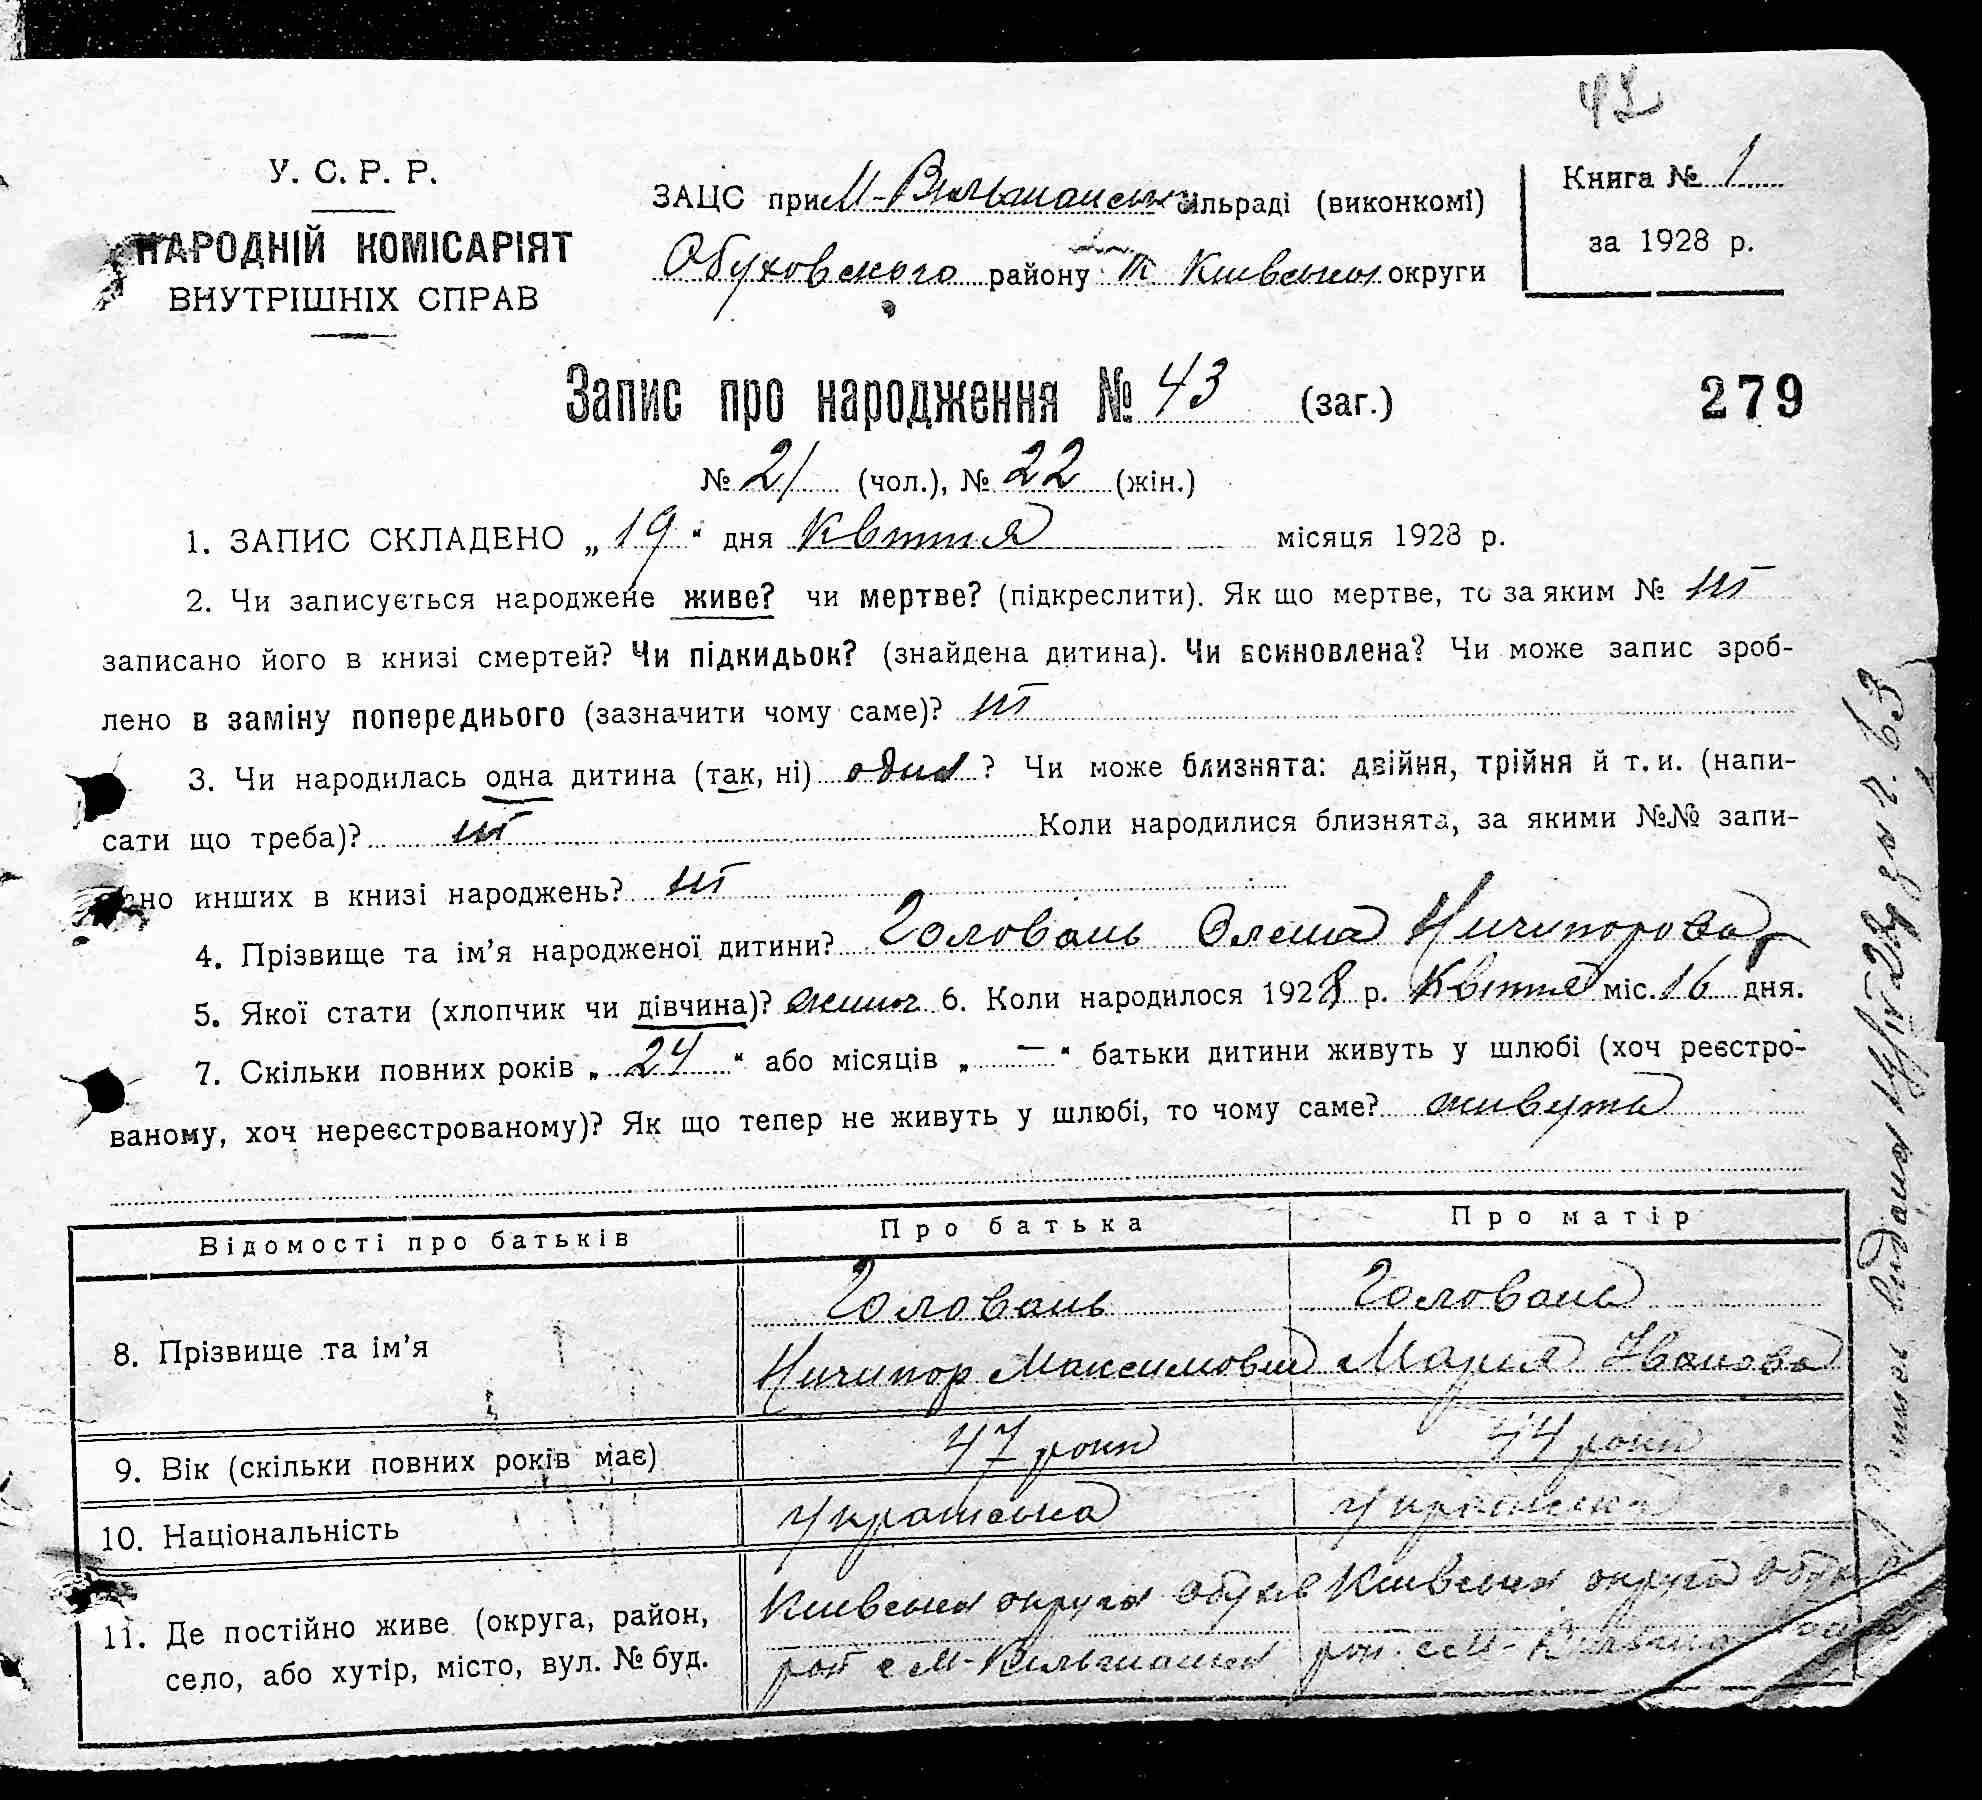 У. С. Р. Р.
НАРОДНІЙ КОМІСАРІЯТ
ВНУТРІШНІХ СПРАВ
ЗАЦС при М-Вильшанськ сільраді (виконкомі)
Обуховського району Київської округи
Книга № 1
за 1928 р.
Запис про народження № 43 (заг.)
279
№ 21 (чол.), № 22 (жін.)
1. ЗАПИС СКЛАДЕНО „ 19 “ дня Квітня місяця 1928 р.
2. Чи записується народжене живе? чи мертве? (підкреслити). Як що мертве, то за яким № ні
записано його в книзі смертей? Чи підкидьок? (знайдена дитина). Чи всиновлена? Чи може запис зроб-
лено в заміну попереднього (зазначити чому саме)? ні
3. Чи народилась одна дитина (так, ні) одна ? Чи може близнята: двійня, трійня й т. и. (напи-
сати що треба)? ні Коли народилися близнята, за якими №№ запи-
но инших в книзі народжень? ні
4. Прізвище та ім’я народженої дитини? Головань Олена Ничипорова
5. Якої стати (хлопчик чи дівчина)? жіноч 6. Коли народилося 1928 р. Квітня міс. 16 дня.
7. Скільки повних років „ 24 “ або місяців „ — “ батьки дитини живуть у шлюбі (хоч реєстро-
ваному, хоч нереєстрованому)? Як що тепер не живуть у шлюбі, то чому саме? живуть
Відомості про батьків Про батька Про матір
8. Прізвище та ім’я
Головань Головань
Ничипор Максимович Мария Иванова
9. Вік (скільки повних років має) 47 роки 44 роки
10. Національність Українська Українська
11. Де постійно живе (округа, район,
село, або хутір, місто, вул. № буд.
Київська округа Обухів Київська округа Обухів
рай с М-Вильшанка рай. с М-
видана за ч. 63